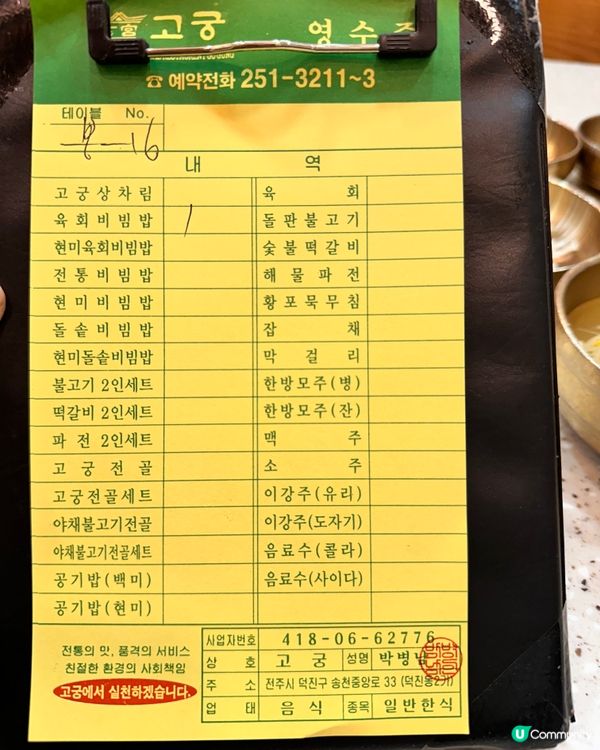 고궁 영수
☎ 예약전화 251-3211~3
테이블 No.
16
내 역
고궁상차림 육 회
육회비빔밥 1 돌판불고기
현미육회비빔밥 숯불떡갈비
전통비빔밥 해물파전
현미비빔밥 황포묵무침
돌솥비빔밥 잡 채
현미돌솥비빔밥 막 걸 리
불고기 2인세트 한방모주(병)
떡갈비 2인세트 한방모주(잔)
파전 2인세트 맥 주
고궁전골 소 주
고궁전골세트 이강주(유리)
야채불고기전골 이강주(도자기)
야채불고기전골세트 음료수(콜라)
공기밥(백미) 음료수(사이다)
공기밥(현미)
전통의 맛, 품격의 서비스
친절한 환경의 사회책임
고궁에서 실천하겠습니다.
사업자번호 418-06-62776
상 호 고 궁 성명 박병
주 소 전주시 덕진구 송천중앙로 33 (덕진동2가)
업 태 음 식 종목 일반한식
U Community